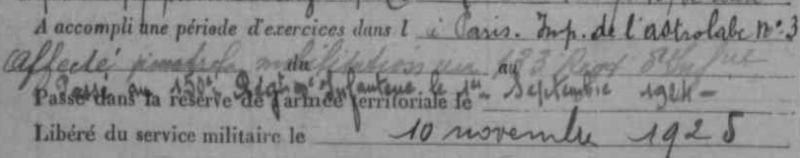 A accompli une période d'exercices dans l à Paris. Imp. de l'astrolabe N° 3
Affecté du au
Passé au 158e Régt d'Infanterie le 1er Septembre 1924 -
Passé dans la réserve de l'armée territoriale le
Libéré du service militaire le 10 novembre 1925